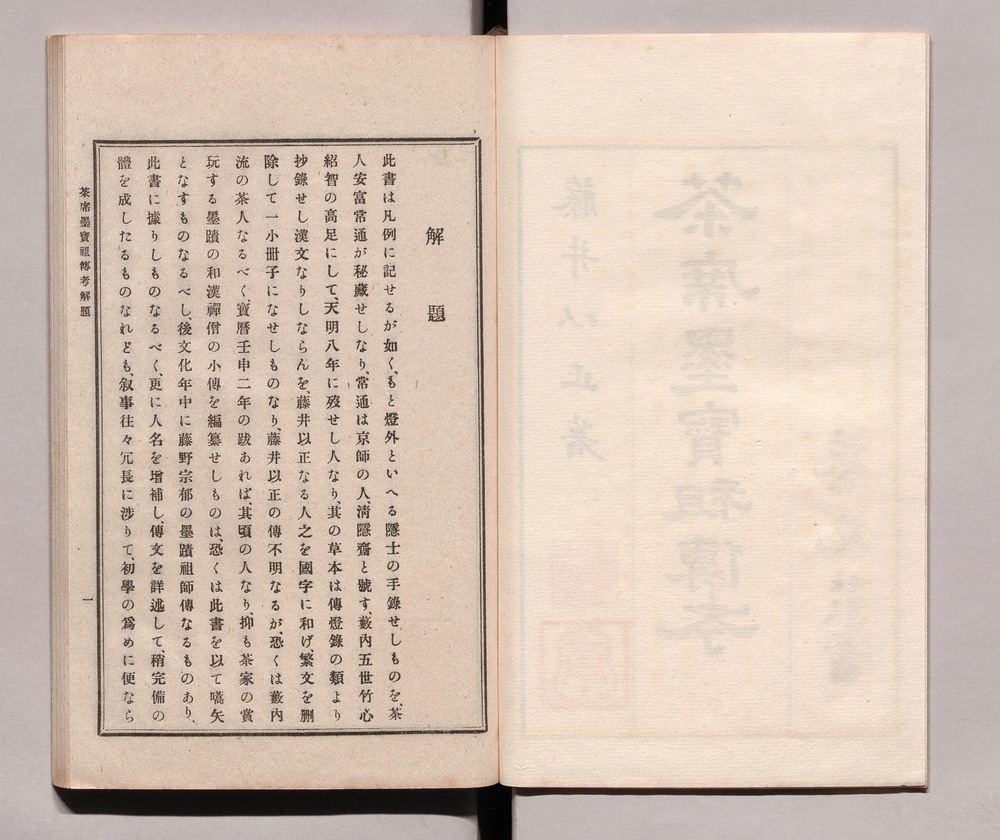 解題
此書は凡例に記せるが如く、もと燈外といへる隱士の手錄せしものを、茶
人安富常通が秘藏せしなり、常通は京師の人、淸隱齋と號す、藪內五世竹心
紹智の高足にして、天明八年に歿せし人なり、其の草本は傳燈錄の類より
抄錄せし漢文なりしならんを、藤井以正なる人之を國字に和げ、繁文を删
除して一小册子になせしものなり、藤井以正の傳不明なるが、恐くは藪內
流の茶人なるべく、寶曆壬申二年の跋あれば、其頃の人なり、抑も茶家の賞
玩する墨蹟の和漢禪僧の小傳を編纂せしものは、恐くは此書を以て嚆矢
となすものなるべし、後文化年中に藤野宗郁の墨蹟祖師傳なるものあり、
此書に據りしものなるべく、更に人名を增補し、傳文を詳述して、稍完備の
體を成したるものなれども、叙事往々冗長に涉りて、初學の爲めに便なら
茶席墨寶祖傳考解題
一
茶席墨寶祖傳考
藤井以正著